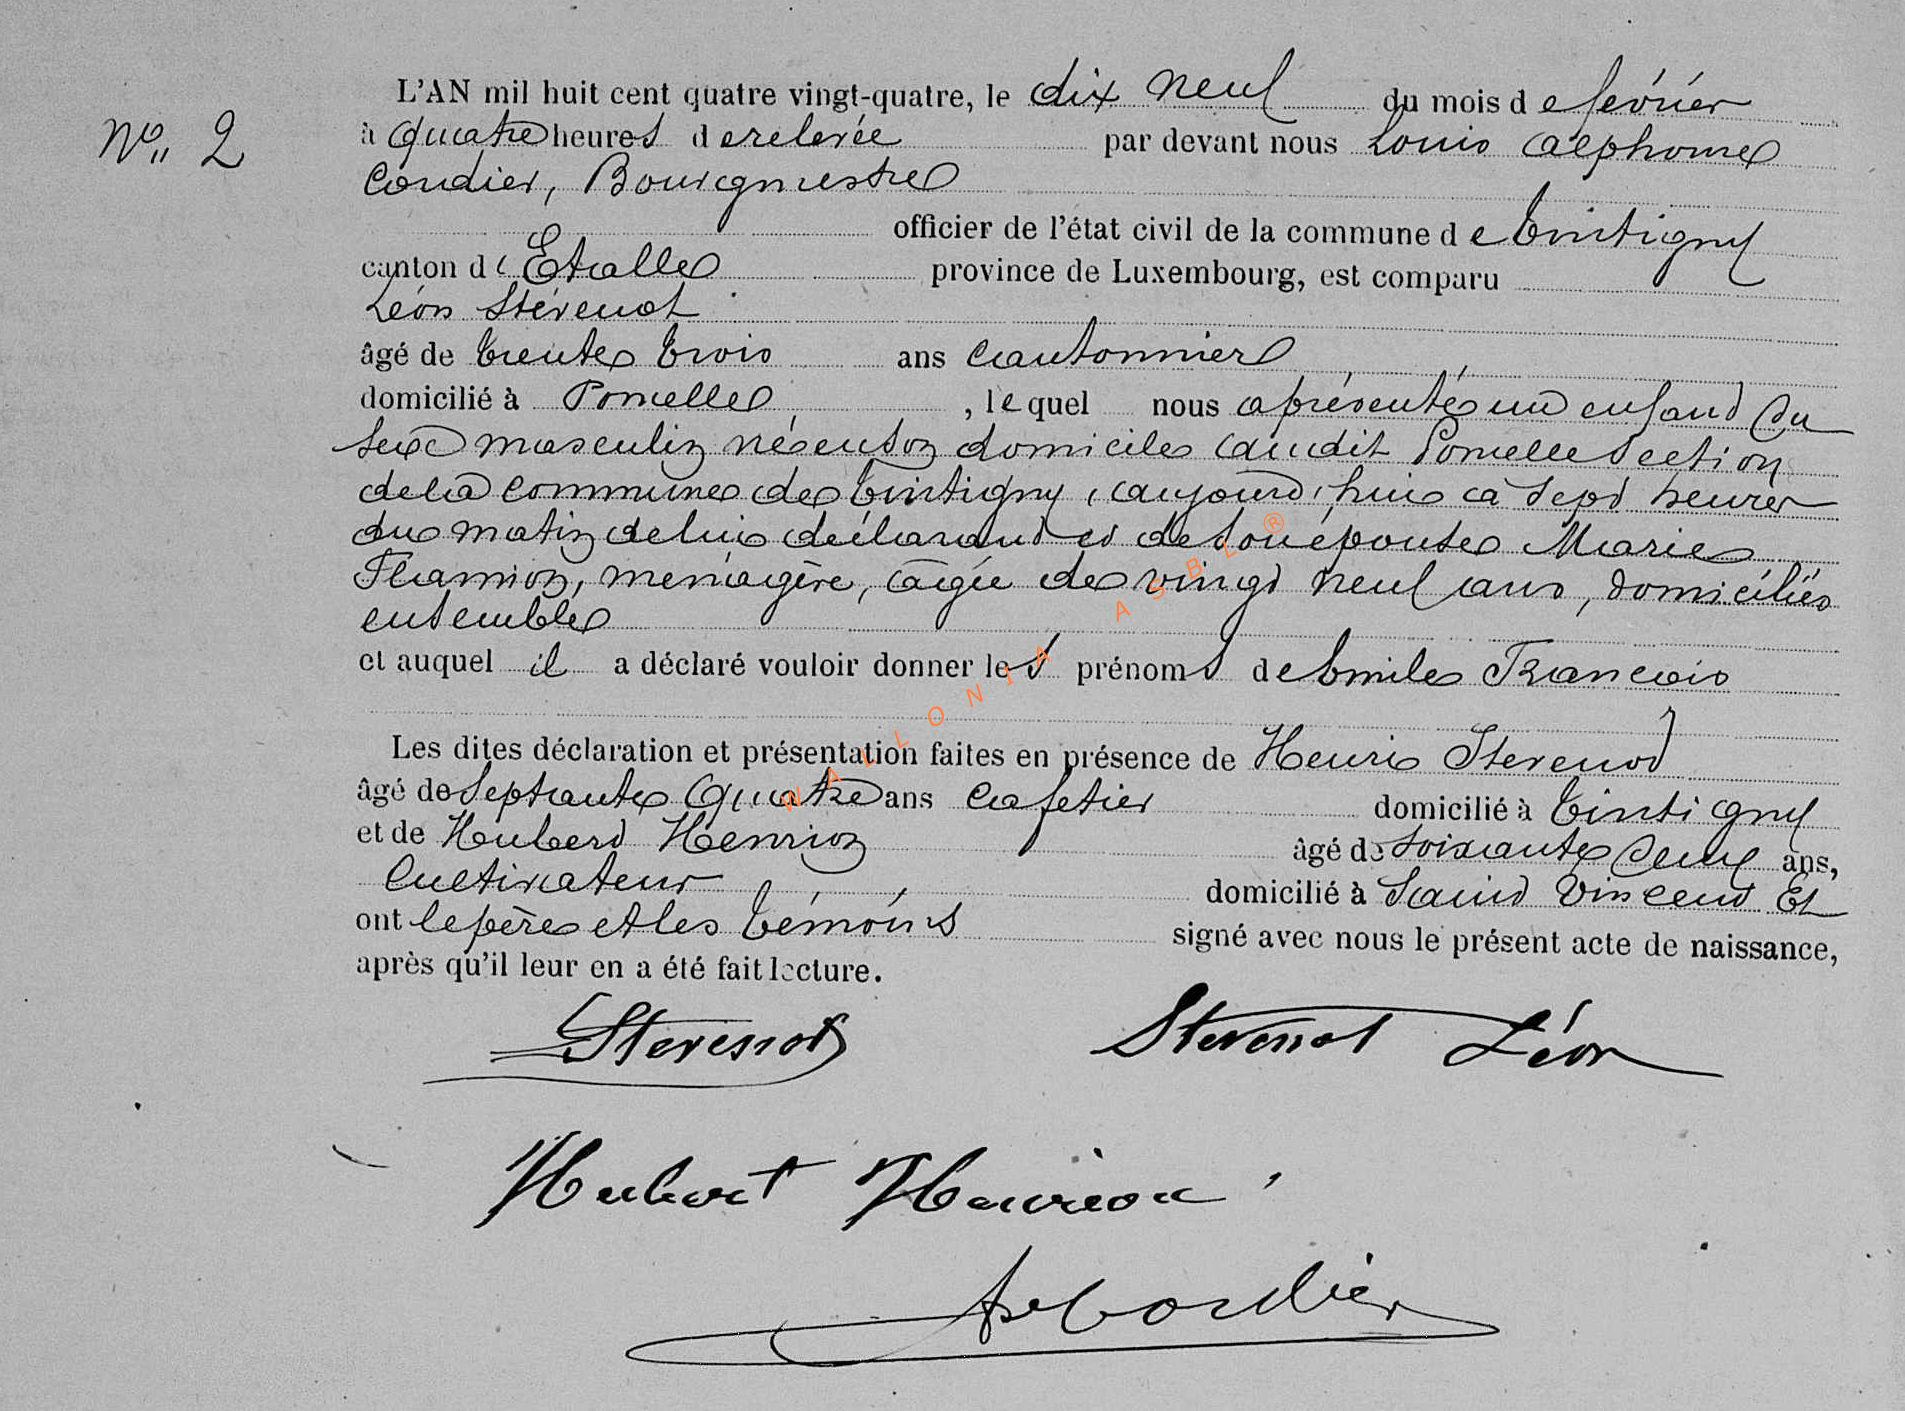 L'AN mil huit cent quatre vingt-quatre, le dix neuf du mois de février
No. 2
à quatre heures de relevée par devant nous Louis Alphonse
Cordier, Bourgmestre
officier de l'état civil de la commune de Tintigny
canton d'Etalle province de Luxembourg, est comparu
Léon Stévenot
âgé de trente trois ans cantonnier
domicilié à Poncelle, lequel nous a présenté un enfand du
sexe masculin né en son domicile audit Poncelle section
de la commune de Tintigny, aujourd'hui à sept heures
du matin de lui déclarand et de son épouse Marie
Flamion, ménagère, âgée de vingt neuf ans, domiciliés
ensemble
et auquel il a déclaré vouloir donner les prénoms de Emile François
Les dites déclaration et présentation faites en présence de Henri Stevenod
âgé de septante quatre ans cafetier domicilié à Tintigny
et de Huberd Henrion âgé de soixante deux ans,
Cultivateur domicilié à Saind Vincend Et
ont le père et les témoins signé avec nous le présent acte de naissance,
après qu'il leur en a été fait lecture.
Stevenot Stevenot Léon
Hubert Henrion
Cordier
WALLONIA ASBL®